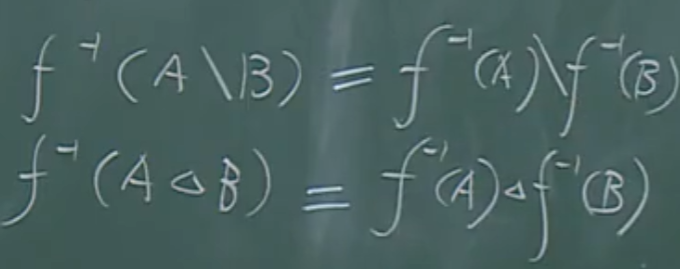 f⁻¹(A\B) = f⁻¹(A)\f⁻¹(B)
f⁻¹(A△B) = f⁻¹(A)△f⁻¹(B)